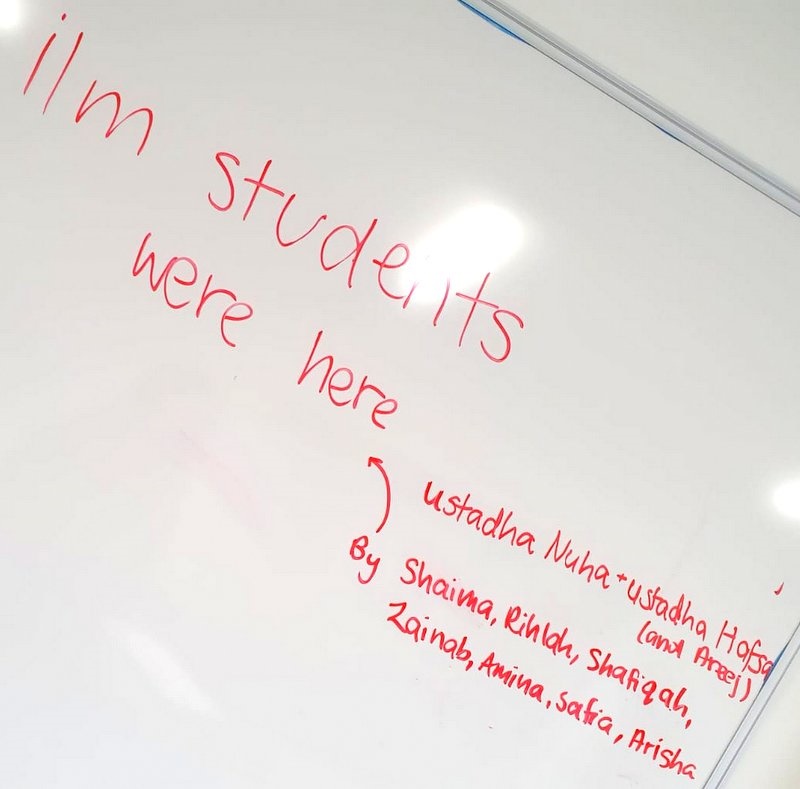 ilm students
were here
ustadha Nuha + ustadha Hafsa
(and Areej)
By Shaima, Rihlah, Shafiqah,
Zainab, Amina, Safia, Arisha